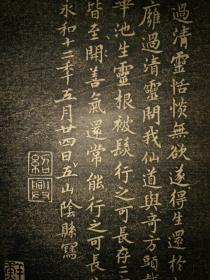 過清靈恬惔無欲遂得生還於
膺過清靈問我仙道與奇方頭載
華池生靈根被髮行之可長存三
皆至開善氣還常能行之可長
永和十二年五月廿四日五山陰縣寫
紹興
軒